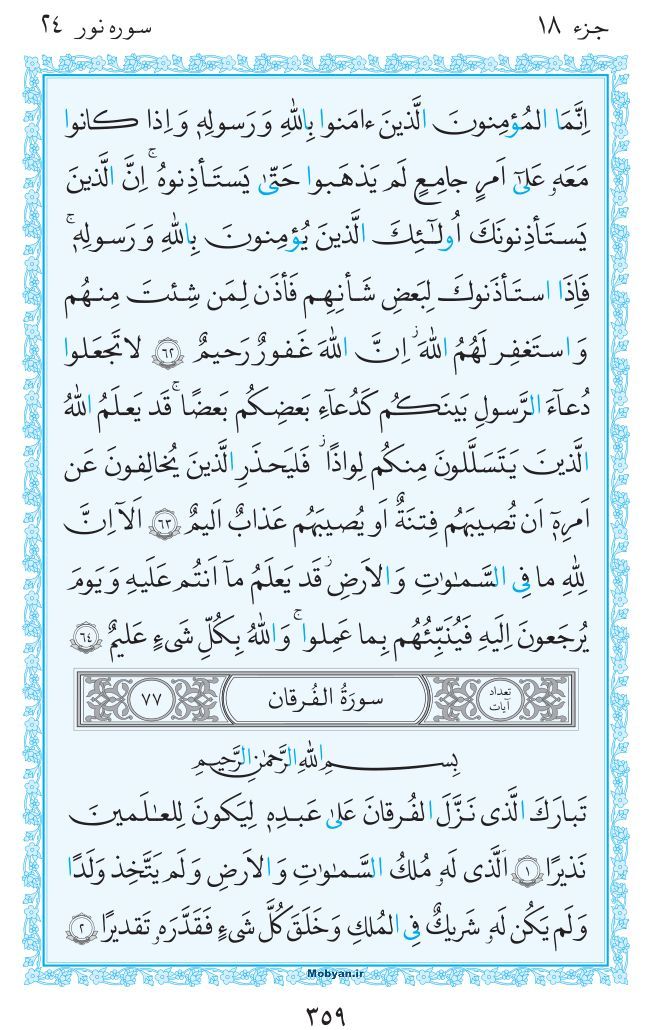 جزء ۱۸
سوره نور ۲۴
اِنَّمَا المُؤمِنونَ الَّذينَ ءامَنوا بِاللّٰهِ وَ رَسولِهٖ وَ اِذا كانوا
مَعَهٗ عَلىٰٓ اَمرٍ جامِعٍ لَم يَذهَبوا حَتّىٰ يَستَأذِنوهُۚ اِنَّ الَّذينَ
يَستَأذِنونَكَ اُولٰٓئِكَ الَّذينَ يُؤمِنونَ بِاللّٰهِ وَ رَسولِهٖۚ
فَاِذَا استَأذَنوكَ لِبَعضِ شَأنِهِم فَأذَن لِمَن شِئتَ مِنهُم
وَ استَغفِر لَهُمُ اللّٰهَؗ اِنَّ اللّٰهَ غَفورٌ رَحيمٌ ﴿۶۲﴾ لا تَجعَلوا
دُعآءَ الرَّسولِ بَينَكُم كَدُعآءِ بَعضِكُم بَعضًاۚ قَد يَعلَمُ اللّٰهُ
الَّذينَ يَتَسَلَّلونَ مِنكُم لِواذًاؗ فَليَحذَرِ الَّذينَ يُخالِفونَ عَن
اَمرِهٖٓ اَن تُصيبَهُم فِتنَةٌ اَو يُصيبَهُم عَذابٌ اَليمٌ ﴿۶۳﴾ اَلآ اِنَّ
لِلّٰهِ ما فِي السَّمٰوٰتِ وَ الاَرضِؗ قَد يَعلَمُ مآ اَنتُم عَلَيهِ وَ يَومَ
يُرجَعونَ اِلَيهِ فَيُنَبِّئُهُم بِما عَمِلواۚ وَ اللّٰهُ بِكُلِّ شَیءٍ عَليمٌ ﴿۶۴﴾
تعداد آیات
سورَةُ الفُرقان
۷۷
بِسمِ اللّٰهِ الرَّحمٰنِ الرَّحيمِ
تَبارَكَ الَّذی نَزَّلَ الفُرقانَ عَلىٰ عَبدِهٖ لِيَكونَ لِلعٰلَمينَ
نَذيرًا ﴿۱﴾ اَلَّذی لَهٗ مُلكُ السَّمٰوٰتِ وَ الاَرضِ وَ لَم يَتَّخِذ وَلَدًا
وَ لَم يَكُن لَهٗ شَريكٌ فِي المُلكِ وَ خَلَقَ كُلَّ شَیءٍ فَقَدَّرَهٗ تَقديرًا ﴿۲﴾
Mobyan.ir
۳۵۹